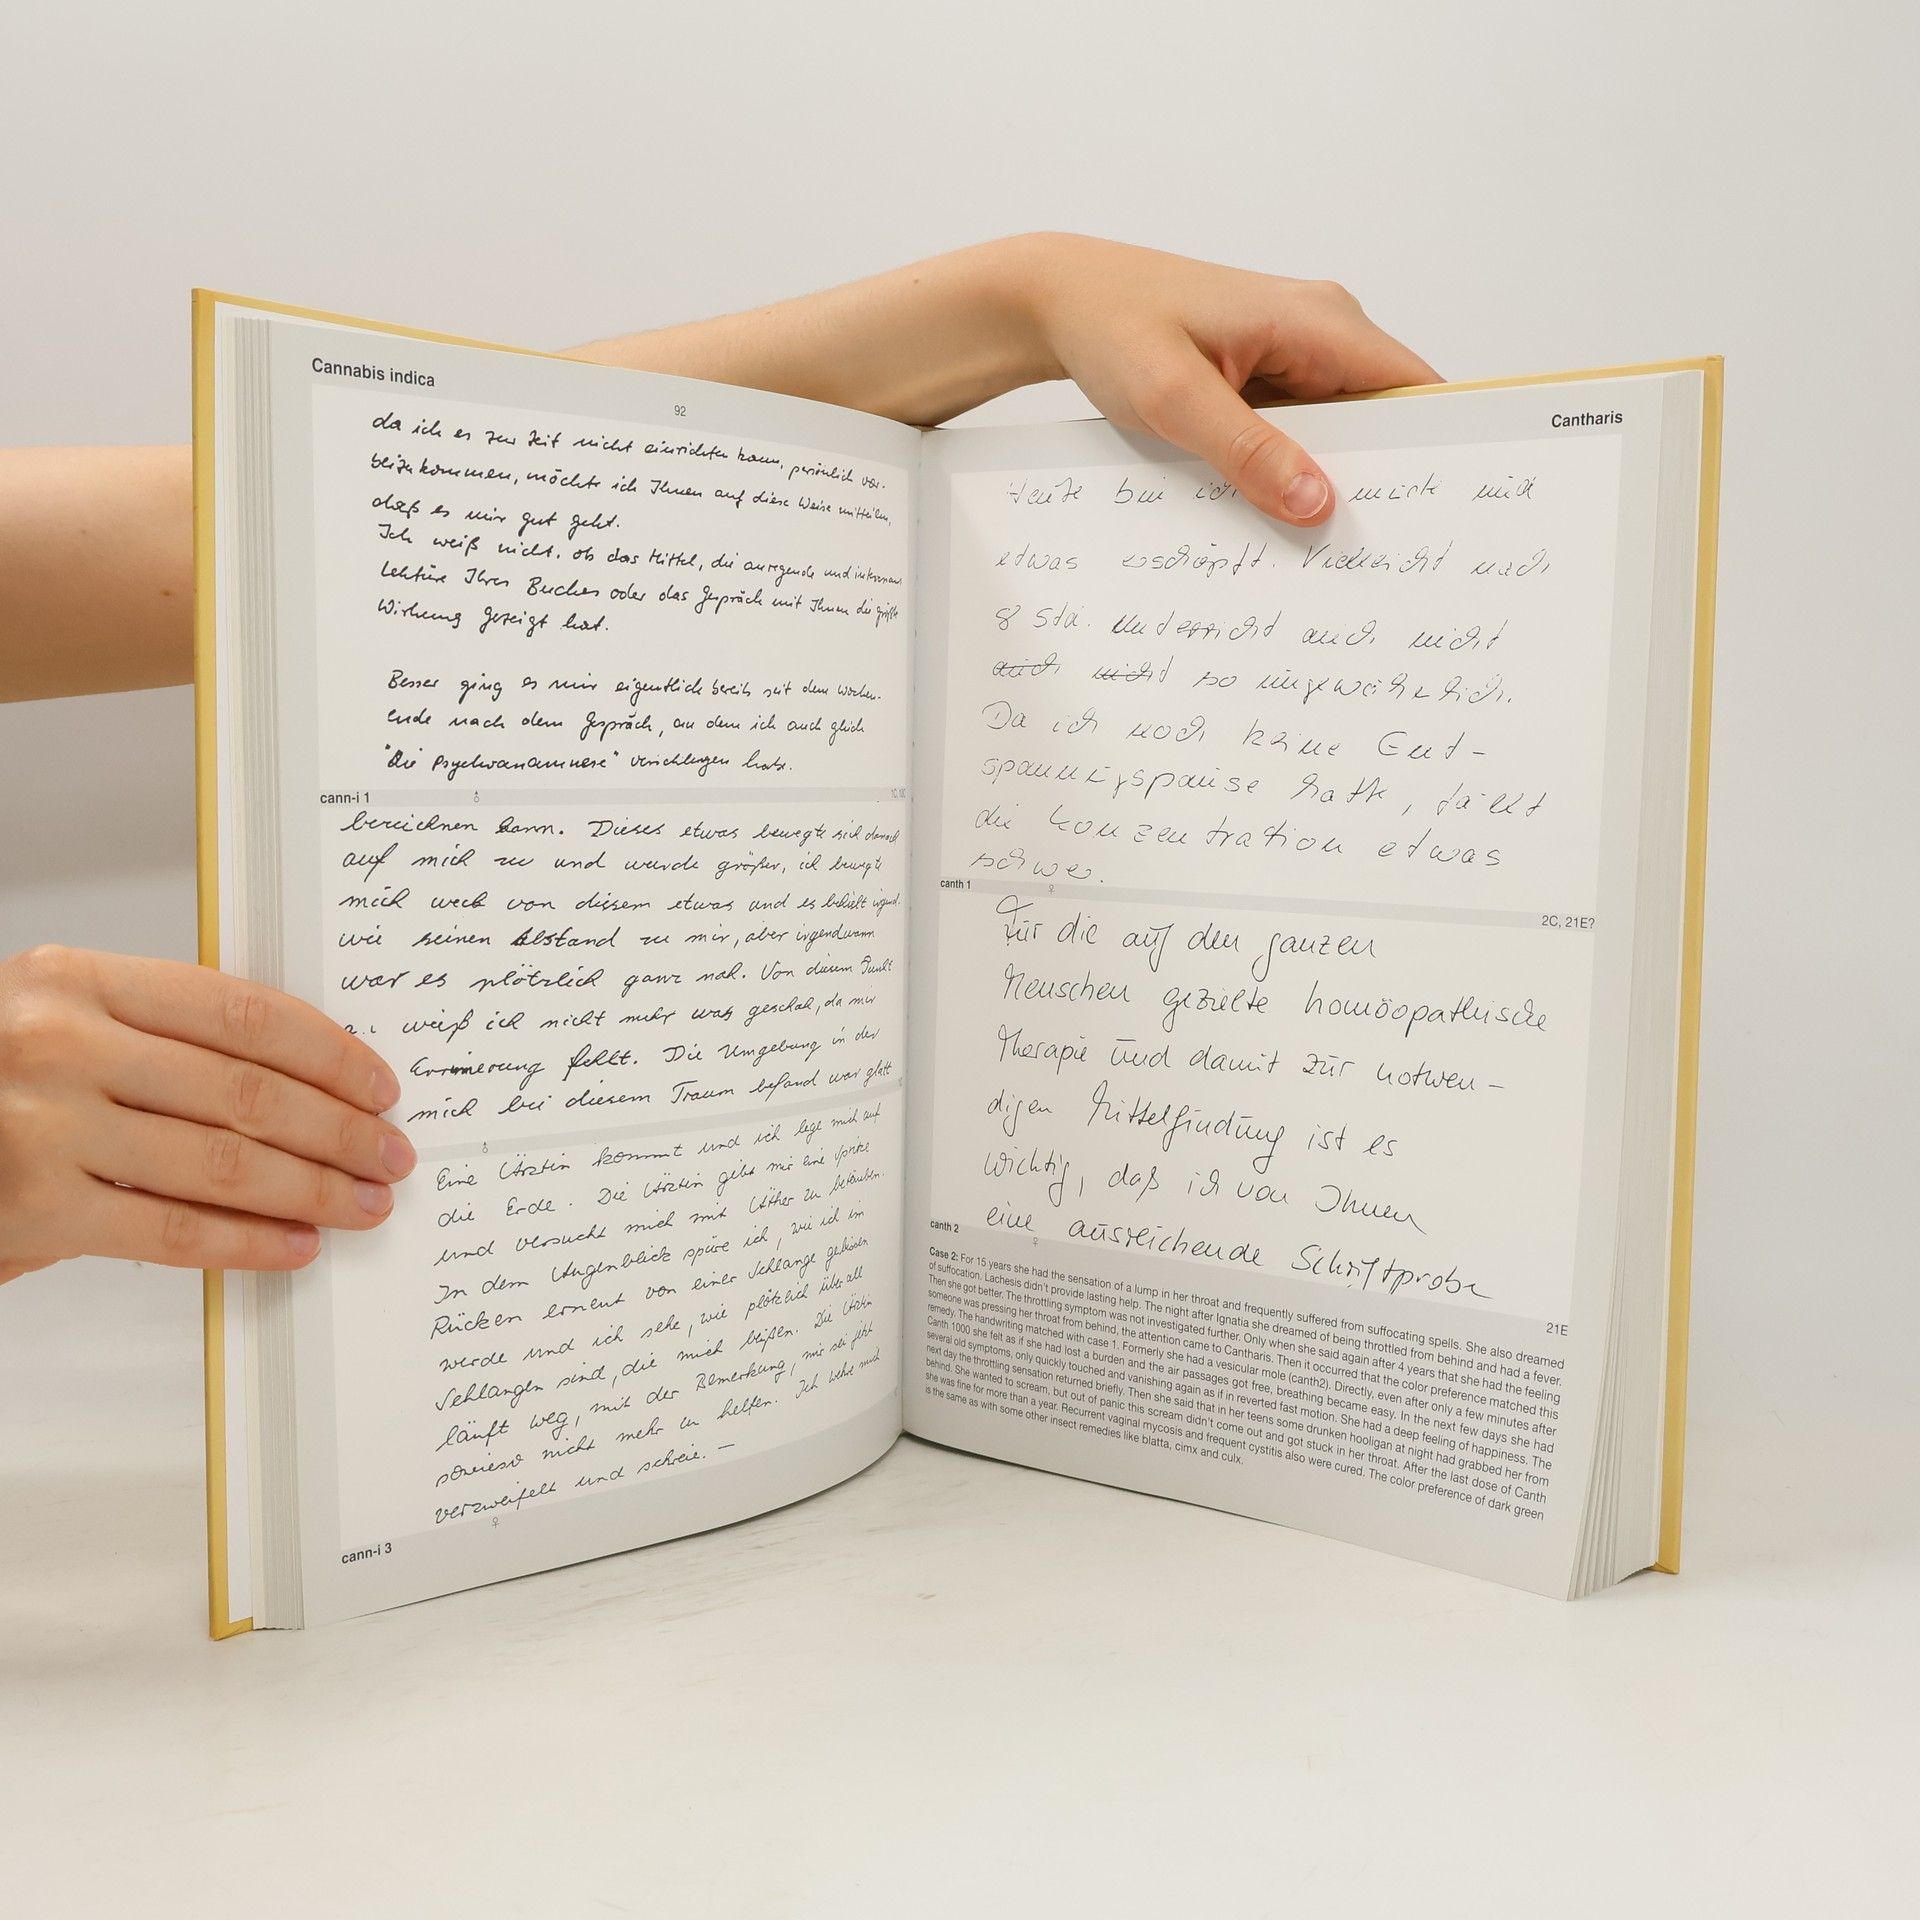 Cannabis indica
92
da ich es zur Zeit nicht einrichten kann, persönlich vor-
beizukommen, möchte ich Ihnen auf diese Weise mitteilen,
daß es mir gut geht.
Ich weiß nicht, ob das Mittel, die anregende und
Lektüre Ihres Buches oder das Gespräch mit Ihnen die größte
Wirkung gezeigt hat.
Besser ging es mir eigentlich bereits seit dem Wochen-
ende nach dem Gespräch, an dem ich auch gleich
"Die Psychoanamnese" verschlungen habe.
cann-i 1 ♂
bezeichnen kann. Dieses etwas bewegte sich danach
auf mich zu und wurde größer, ich bewegte
mich weck von diesem etwas und es behielt irgend-
wie seinen Abstand zu mir, aber irgendwann
war es plötzlich ganz nah. Von diesem Punkt
weiß ich nicht mehr was geschah, da mir
Errinerung fehlt. Die Umgebung in der
mich bei diesem Traum befand war glatt
♂
Eine Ärztin kommt und ich lege mich auf
die Erde. Die Ärztin gibt mir eine Spritze
und versucht mich mit Äther zu betäuben.
In dem Augenblick spüre ich, wie ich im
Rücken erneut von einer Schlange gebissen
werde und ich sehe, wie plötzlich überall
Schlangen sind, die mich beißen. Die Ärztin
läuft weg, mit der Bemerkung, mir sei jetzt
sowieso nicht mehr zu helfen. Ich wehre mich
verzweifelt und schreie. —
♀
cann-i 3
Cantharis
Heute bin ich und
etwas erschöpft. Vielleicht nach
8 Std. Unterricht auch nicht
auch nicht so ungewöhnlich.
Da ich noch keine Ent-
spannungspause hatte, fällt
die Konzentration etwas
schwer.
canth 1 ♀ 2C, 21E?
Für die auf den ganzen
Menschen gezielte homöopathische
Therapie und damit zur notwen-
digen Mittelfindung ist es
wichtig, daß ich von Ihnen
eine ausreichende Schriftprobe
canth 2 ♀ 21E
Case 2: For 15 years she had the sensation of a lump in her throat and frequently suffered from suffocating spells. She also dreamed
of suffocation. Lachesis didn't provide lasting help. The night after Ignatia she dreamed of being throttled from behind and had a fever.
Then she got better. The throttling symptom was not investigated further. Only when she said again after 4 years that she had the feeling
someone was pressing her throat from behind, the attention came to Cantharis. Then it occurred that the color preference matched this
remedy. The handwriting matched with case 1. Formerly she had a vesicular mole (canth2). Directly, even after only a few minutes after
Canth 1000 she felt as if she had lost a burden and the air passages got free, breathing became easy. In the next few days she had
several old symptoms, only quickly touched and vanishing again as if in reverted fast motion. She had a deep feeling of happiness. The
next day the throttling sensation returned briefly. Then she said that in her teens some drunken hooligan at night had grabbed her from
behind. She wanted to scream, but out of panic this scream didn't come out and got stuck in her throat. After the last dose of Canth
she was fine for more than a year. Recurrent vaginal mycosis and frequent cystitis also were cured. The color preference of dark green
is the same as with some other insect remedies like blatta, cimx and culx.